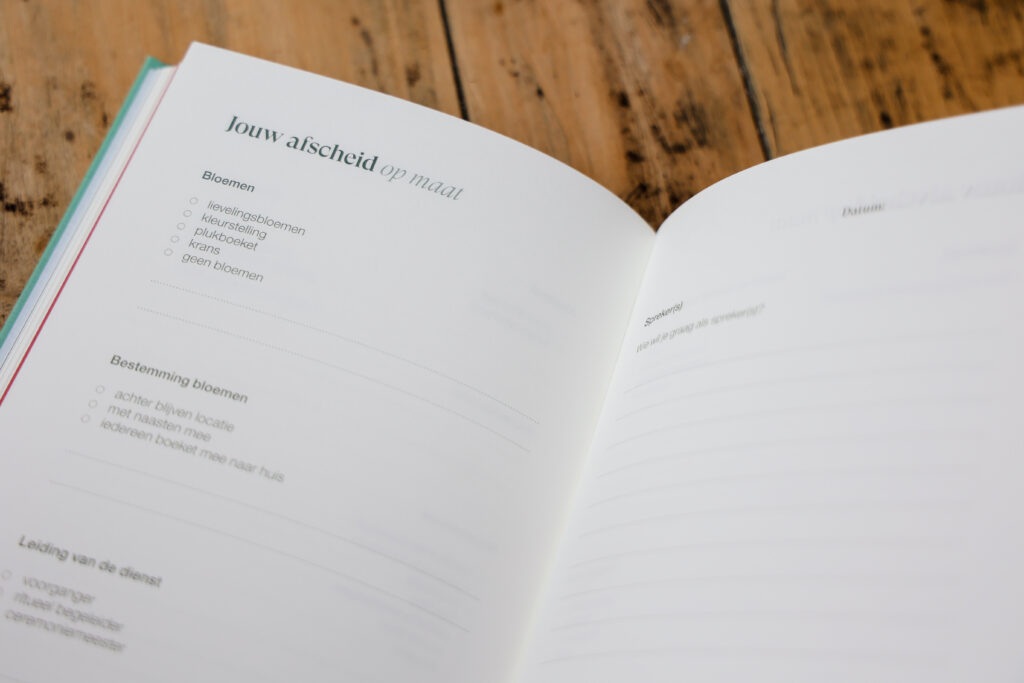 Jouw afscheid op maat
Bloemen
lievelingsbloemen
kleurstelling
plukboeket
krans
geen bloemen
Bestemming bloemen
achter blijven locatie
met naasten mee
iedereen boeket mee naar huis
Leiding van de dienst
voorganger
ritueel begeleider
ceremoniemeester
Datum:
Spreker(s)
Wie wil je graag als spreker(s)?